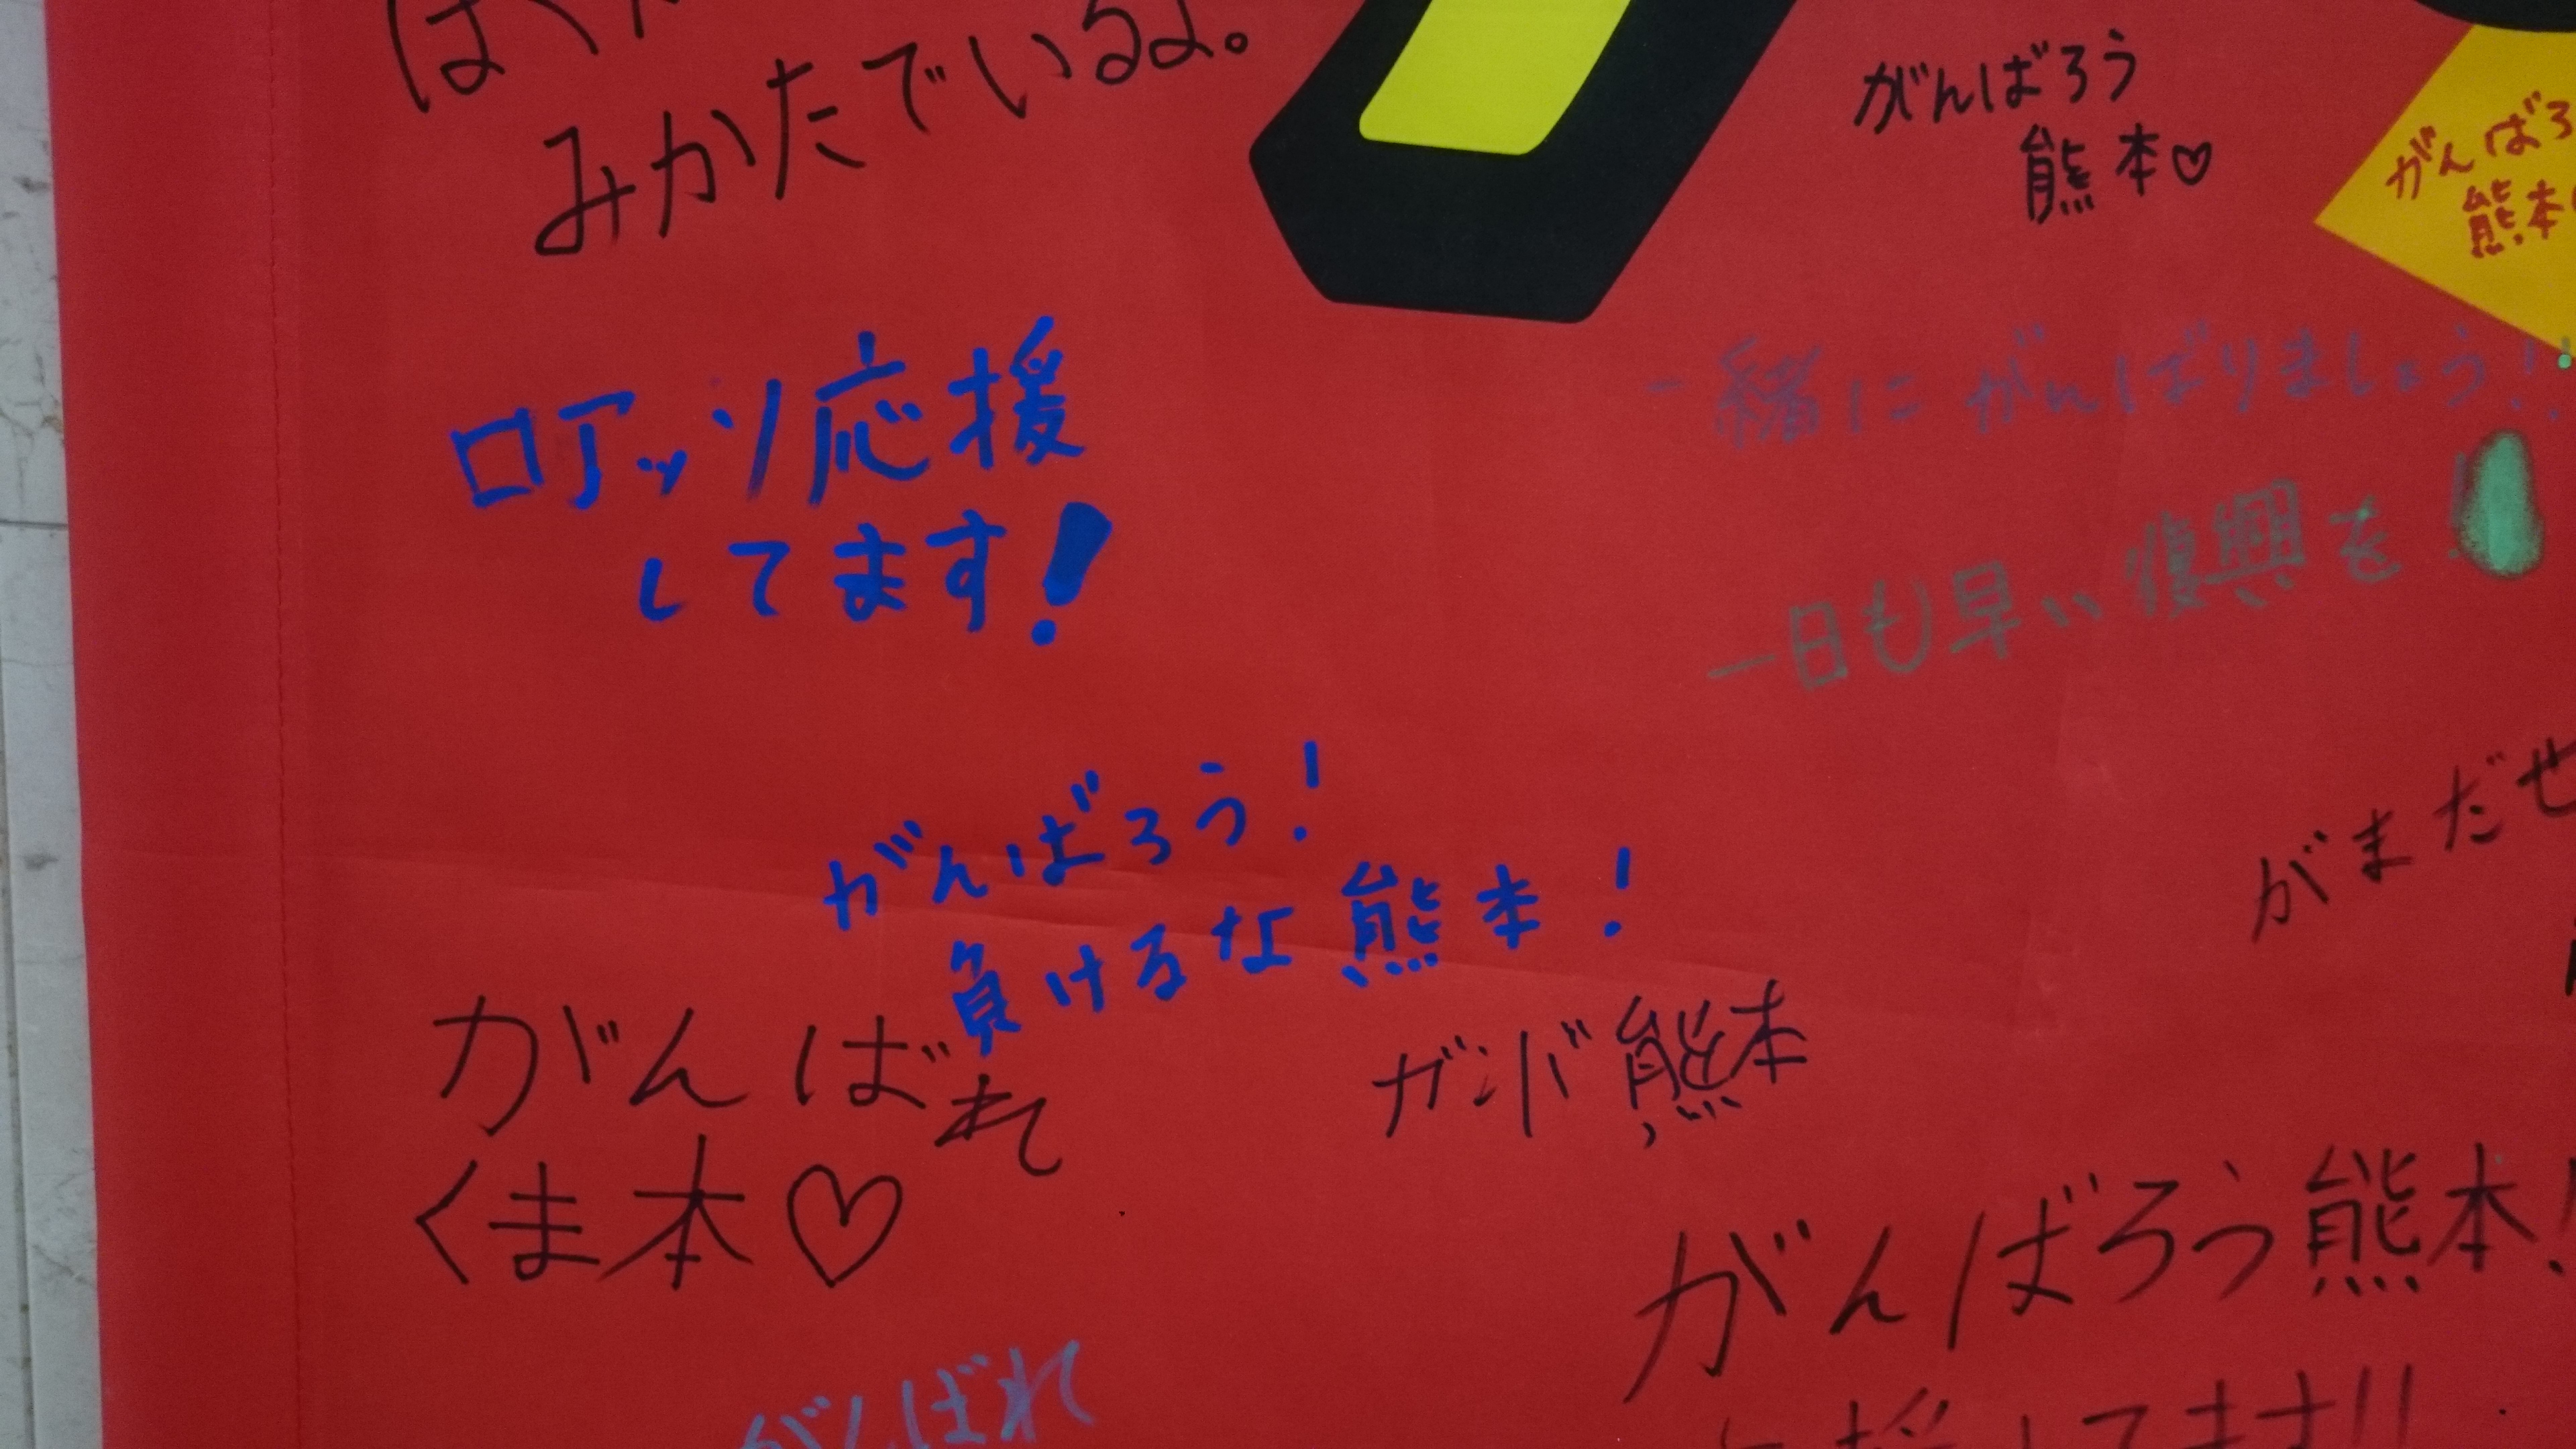 みかたでいるよ。
がんばろう
熊本♡
がんばろ
熊本
ロアッソ応援
してます!
一緒にがんばりましょう!!
一日も早い復興を!
がんばろう!
負けるな熊本!
がまだせ
がんばれ
くま本♡
ガンバ熊本
がんばろう熊本!
がんばれ
してます!!